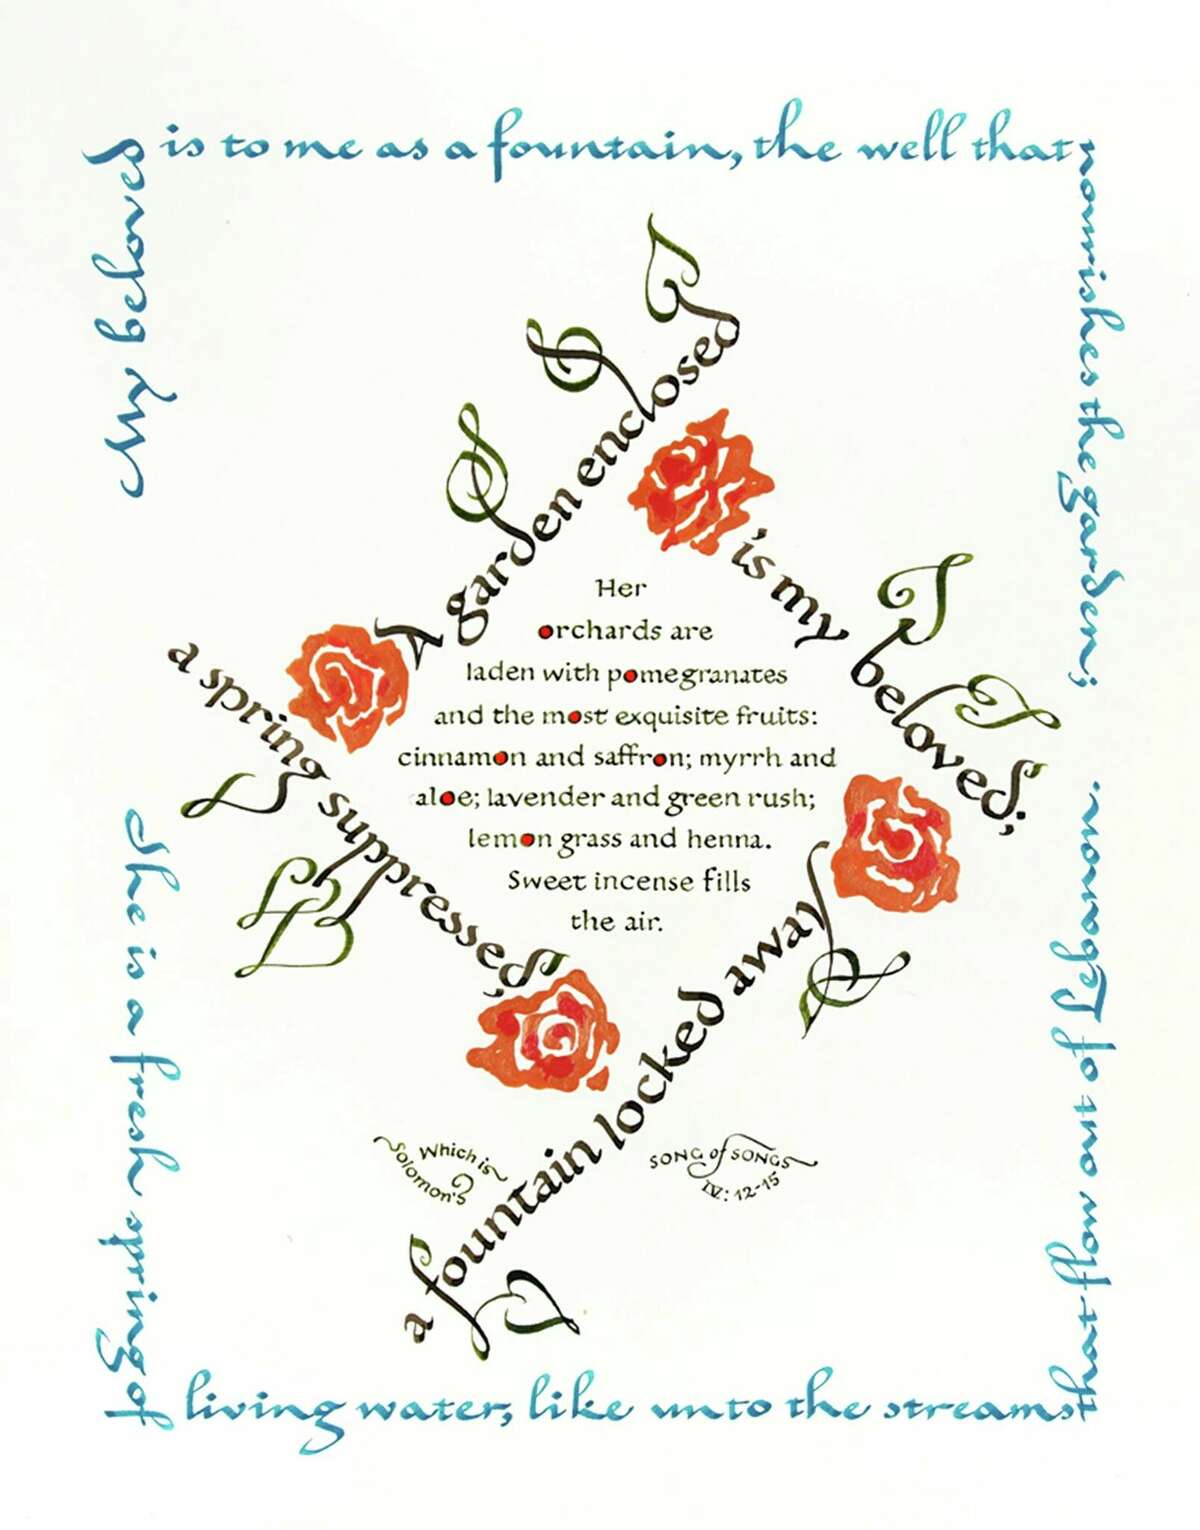 My beloved
is to me as a fountain, the well that
nourishes the garden;
A garden enclosed
is my
beloved;
a spring suppressed,
a fountain locked away
Her
orchards are
laden with pomegranates
and the most exquisite fruits:
cinnamon and saffron; myrrh and
aloe; lavender and green rush;
lemon grass and henna.
Sweet incense fills
the air.
SONG of SONGS
IV: 12-15
Which is
Solomon's
She is a fresh spring of
living water, like unto the streams
that flow out of Lebanon.